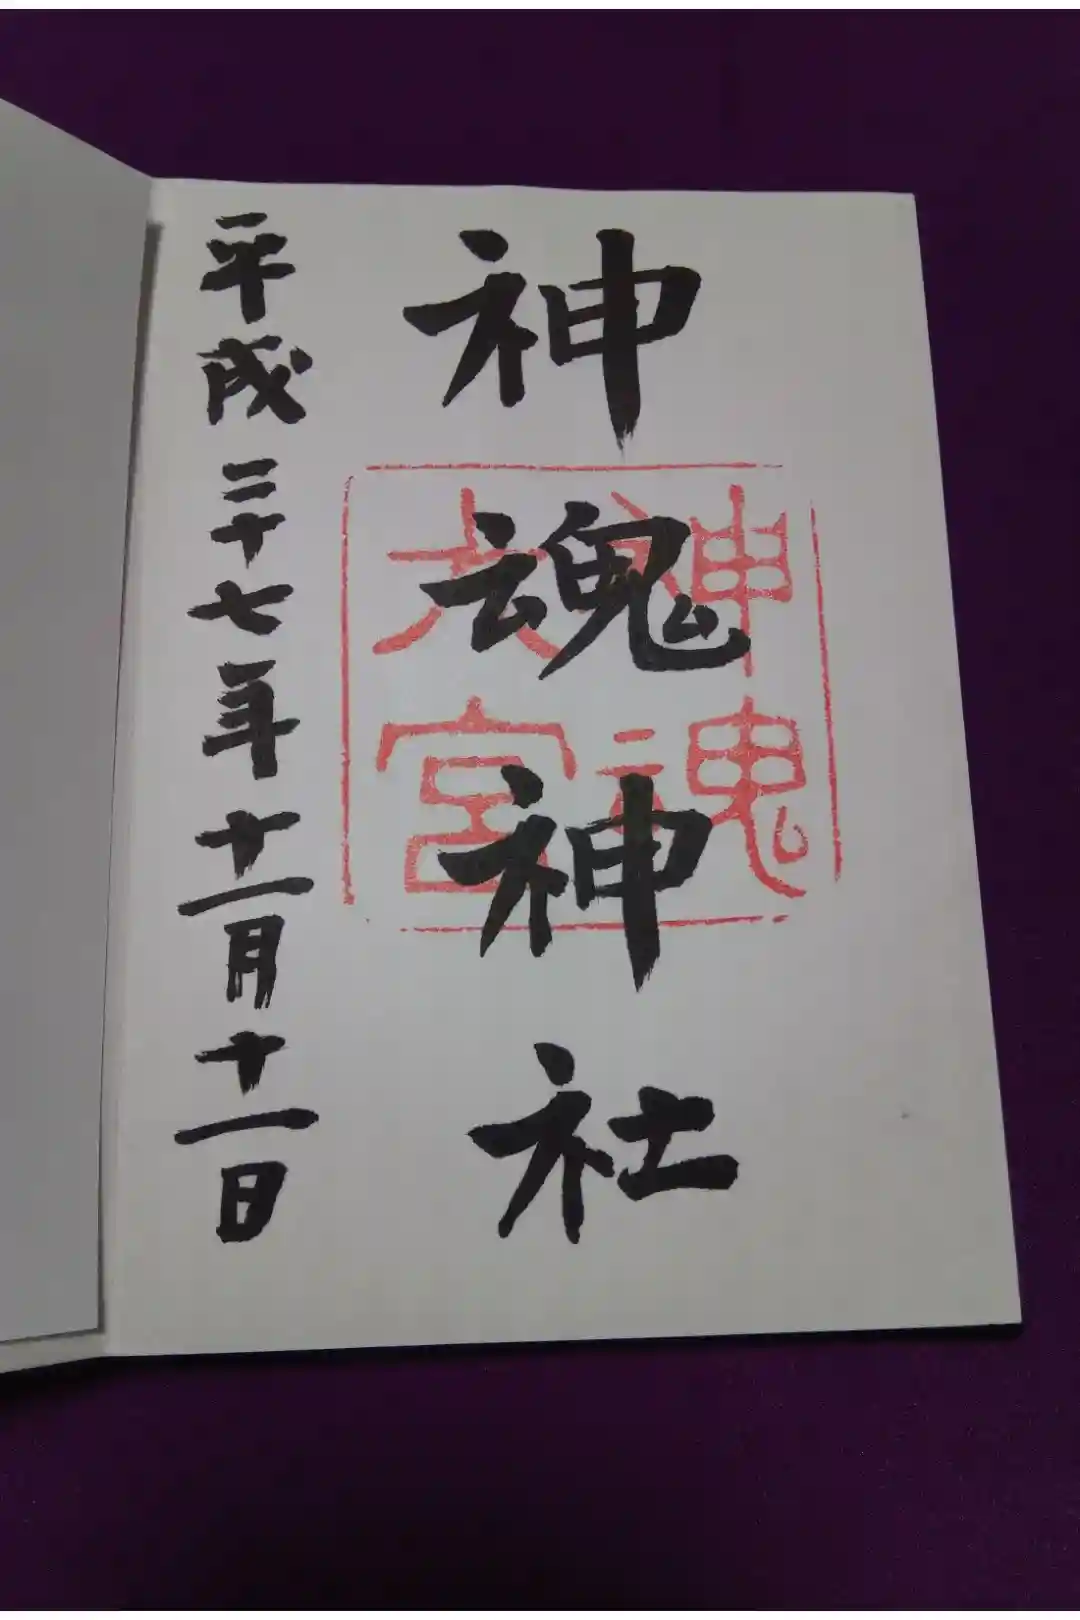 神魂神社
神魂
大宮
平成二十七年十一月十一日